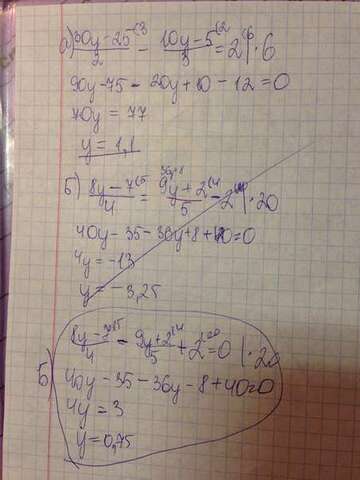 а) (30y-25)/2 (3 - (10y-5)/3 (2 = 2 (6 | · 6
90y-75 - 20y+10 - 12=0
70y = 77
y = 1,1
б) (8y-7)/4 (5 = (9y+2)/5 (4 - 2 | · 20
40y-35-36y+8+40=0
4y = -13
y = -3,25
(8y-7)/4 (5 - (9y+2)/5 (4 + 2 (20 = 0 | · 20
Б) 40y-35-36y-8+40=0
4y = 3
y = 0,75